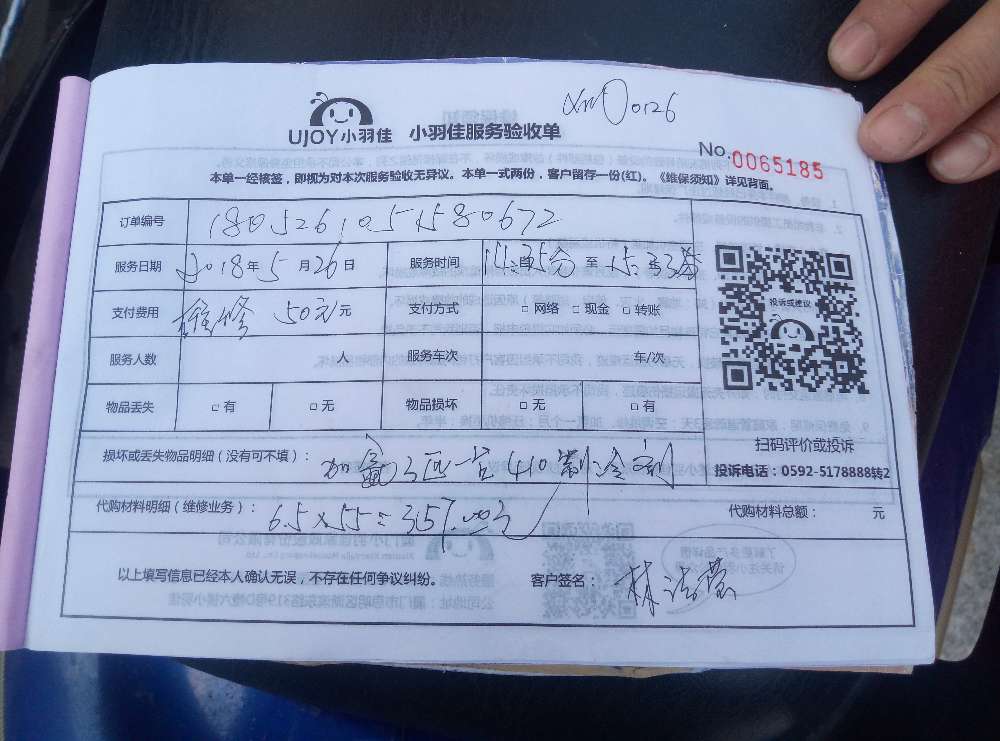 UJOY小羽佳 小羽佳服务验收单
No.0065185
本单一经核签，即视为对本次服务验收无异议。本单一式两份，客户留存一份(红)。《维保须知》详见背面。
订单编号 1805261051580672
服务日期 2018年5月26日 服务时间 至
支付费用 维修 50元元 支付方式 □网络 □现金 □转账
服务人数 人 服务车次 车/次
物品丢失 □有 □无 物品损坏 □无 □有
投诉或建议
扫码评价或投诉
投诉电话：0592-5178888转2
损坏或丢失物品明细（没有可不填）： 加氟3匹一台410制冷剂
代购材料明细（维修业务）： 6.5×55=357.00元 代购材料总额： 元
以上填写信息已经本人确认无误，不存在任何争议纠纷。 客户签名：